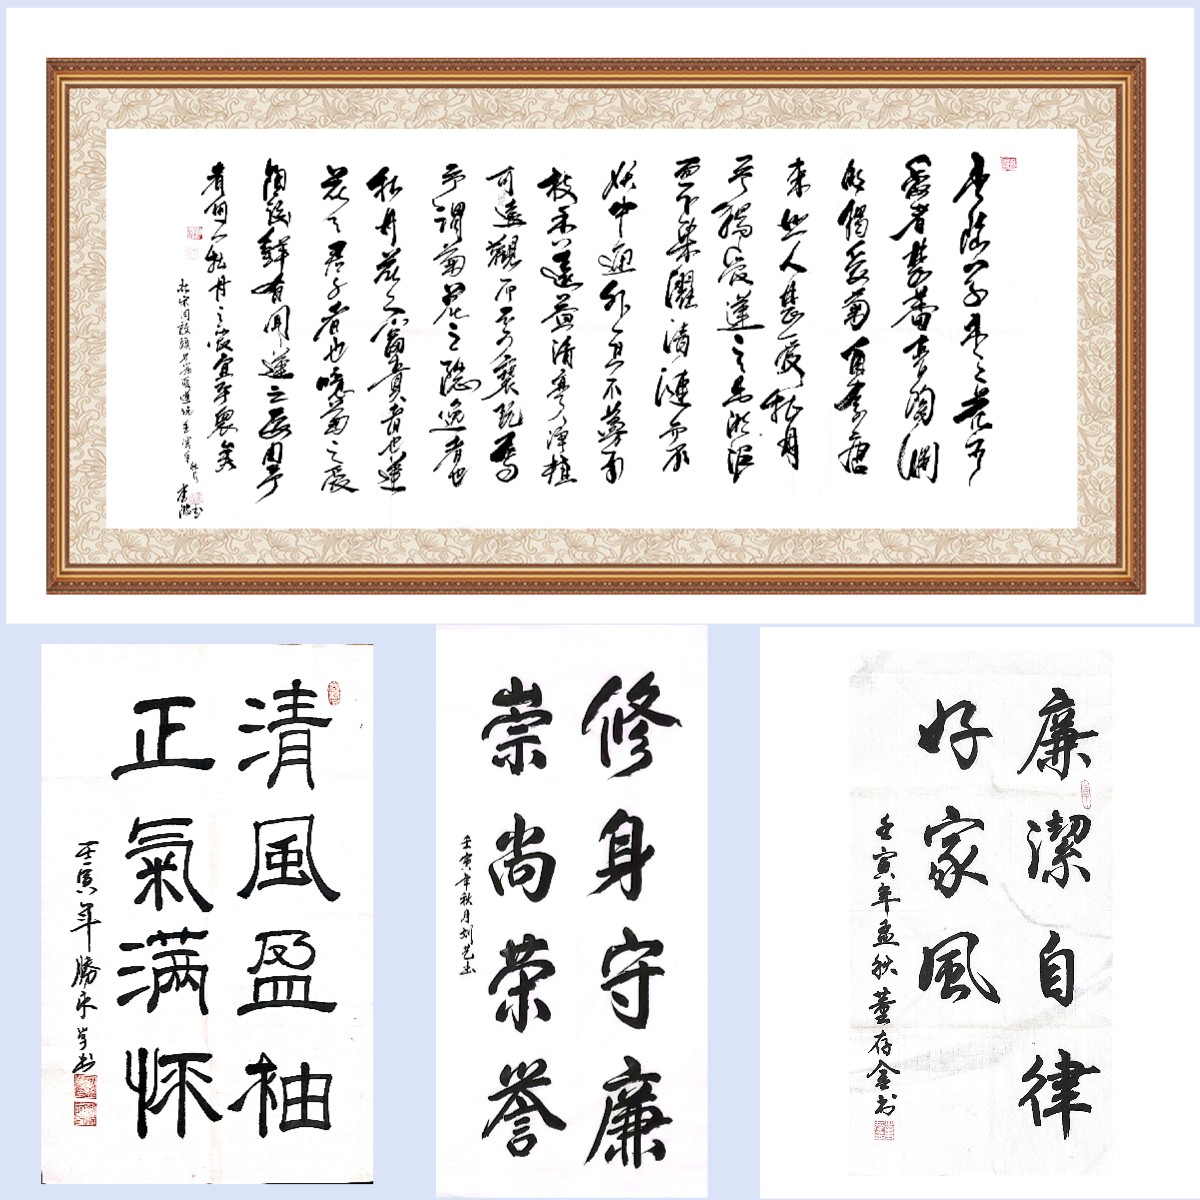 水陸草木之花可
愛者甚蕃晉陶淵
明獨愛菊自李唐
來世人甚愛牡丹
予獨愛蓮之出淤泥
而不染濯清漣而不
妖中通外直不蔓不
枝香遠益清亭亭淨植
可遠觀而不可褻玩焉
予謂菊花之隱逸者也
牡丹花之富貴者也蓮
花之君子者也噫菊之愛
陶後鮮有聞蓮之愛同予
者何人牡丹之愛宜乎眾矣
清風盈袖
正氣滿懷
壬寅年勝永學書
修身守廉
崇尚荣誉
壬寅年秋月刘艺书
廉潔自律
好家風
壬寅年孟秋董存金书